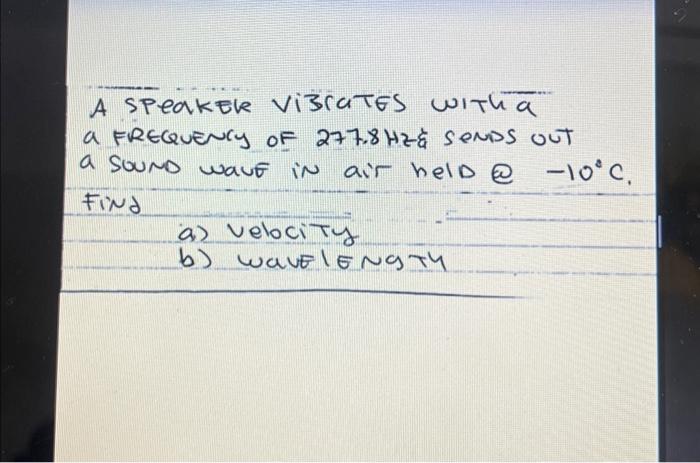 A SPEAKER VIBRATES WITH a
a FREQUENCY OF 277.8 HZ & SENDS OUT
a SOUND WAVE IN air held @ -10°C.
FIND
a) Velocity
b) WAVELENGTH